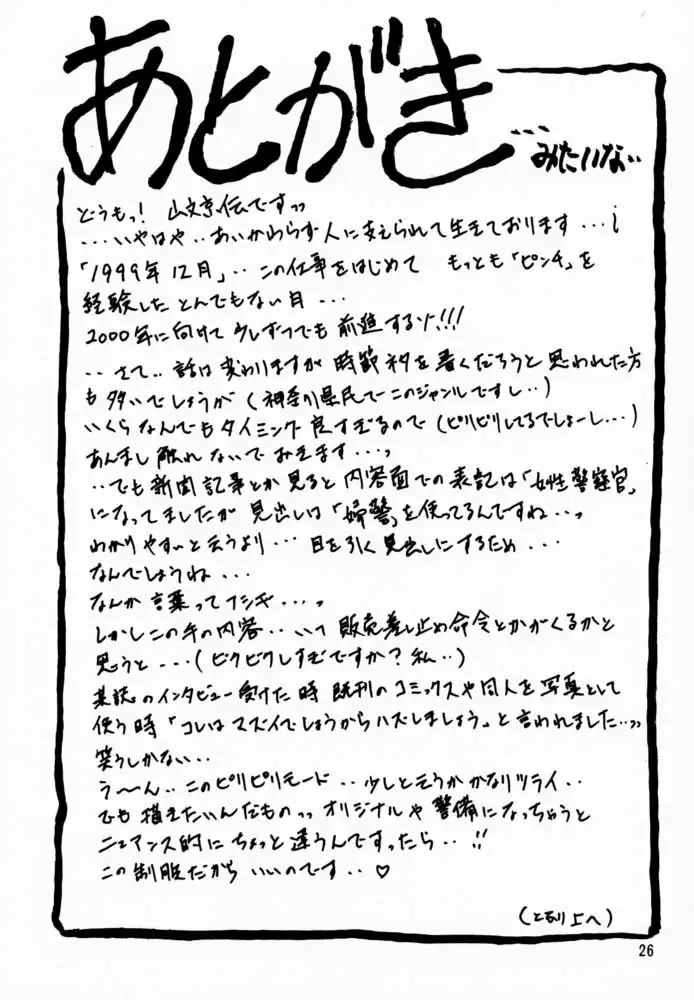 あとがき
・・・みたいな・・
どうもっ! 山文京伝ですっっ
・・・いやはや・・あいかわらず人に支えられて生きております・・・i
「1999年12月」・・この仕事をはじめて もっとも「ピンチ」を
経験したとんでもない月・・・
2000年に向けて少しずつでも前進するゾ!!!
・・さて・・話は変わりますが時節ネタを書くだろうと思われた方
も多いでしょうが(神奈川県民でこのジャンルですし・・)
いくらなんでもタイミング良すぎるので(ピリピリしてるでしょーし・・・)
あんまし触れないでおきます・・・っ
・・でも新聞記事とか見ると内容面での表記は「女性警察官」
になってましたが見出しは「婦警」を使ってるんですね・・っ
わかりやすいと云うより・・・目を引く見出しにするため・・・
なんでしょうね・・・
なんか言葉ってフシギ・・・っ
しかしこの手の内容・・いつ販売差し止め命令とかがくるかと
思うと・・・(ビクビクしすぎですか?私・・)
某誌のインタビュー受けた時既刊のコミックスや同人を写真として
使う時「コレはマズイでしょうからハズしましょう」と言われました・・っっ
笑うしかない・・
う〜ん・・このピリピリモード・・少しと云うかかなりツライ・・
でも描きたいんだものっっ オリジナルや警備になっちゃうと
ニュアンス的にちょっと違うんですったら・・!!
この制服だからいいのです・・♡
(となり上へ)
26